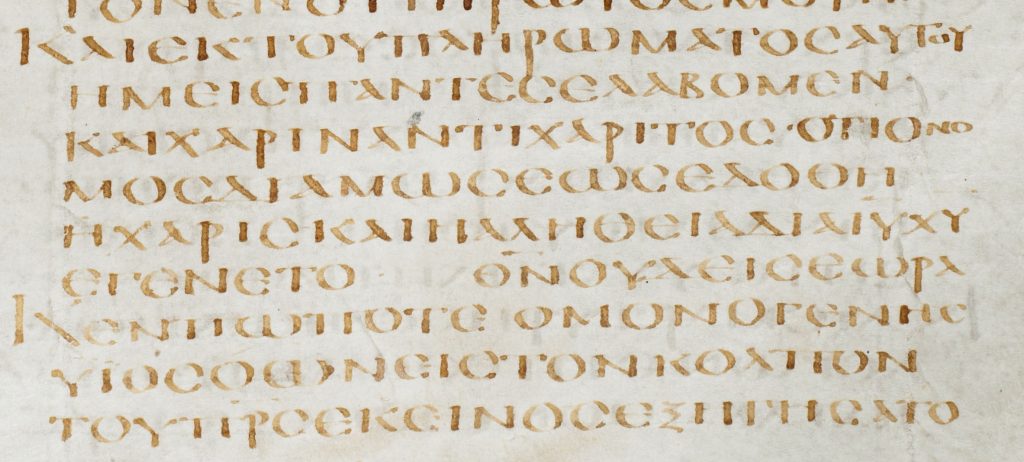 ΓΟΝΕΝΟΤΙΠΡΩΤΟϹΜΟΥΗΝ
ΚΑΙΕΚΤΟΥΠΛΗΡΩΜΑΤΟϹΑΥΤΟΥ
ΗΜΕΙϹΠΑΝΤΕϹΕΛΑΒΟΜΕΝ·
ΚΑΙΧΑΡΙΝΑΝΤΙΧΑΡΙΤΟϹ·ΟΤΙΟΝΟ
ΜΟϹΔΙΑΜΩϹΕΩϹΕΔΟΘΗ
ΗΧΑΡΙϹΚΑΙΗΑΛΗΘΕΙΑΔΙΑΙ̅Υ̅Χ̅Υ̅
ΕΓΕΝΕΤΟ Θ̅Ν̅ΟΥΔΕΙϹΕΩΡΑ
ΚΕΝΠΩΠΟΤΕ ΟΜΟΝΟΓΕΝΗϹ
ΥΙΟϹΟΩΝΕΙϹΤΟΝΚΟΛΠΟΝ
ΤΟΥΠ̅Ρ̅Ϲ̅ΕΚΕΙΝΟϹΕΞΗΓΗϹΑΤΟ